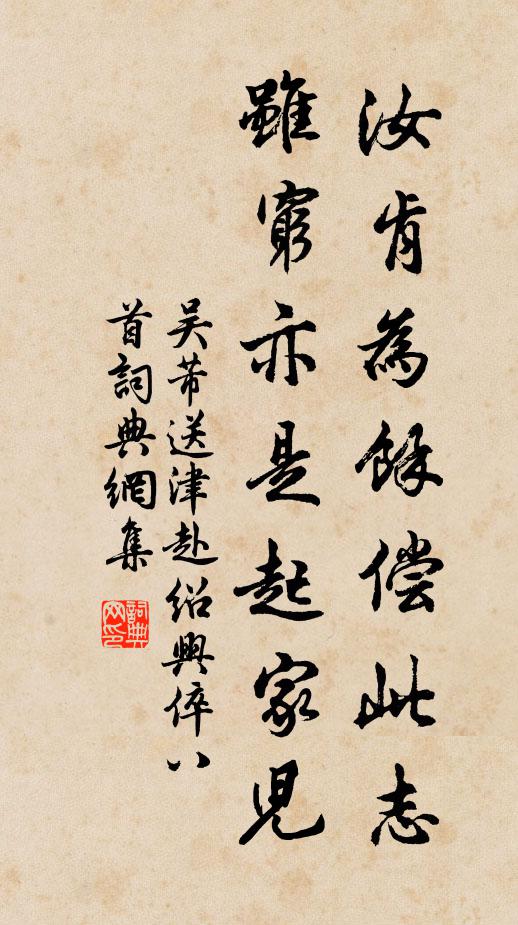 汝肯為餘偿此志
雖窮亦是起家兒
吴芾送津赴绍興倅八
首詞典網集
詞典
网印